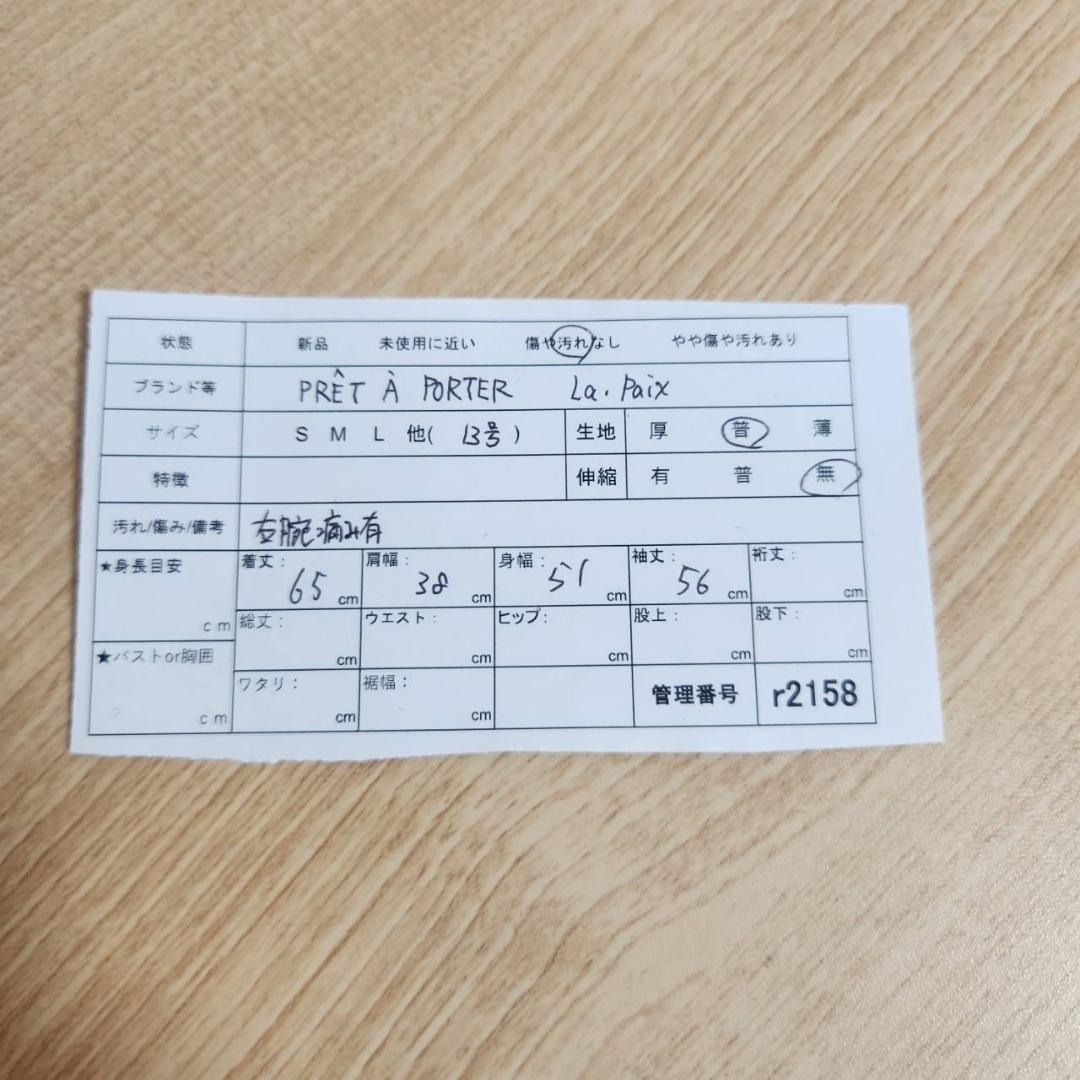 状態 新品 未使用に近い 傷や汚れなし やや傷や汚れあり
ブランド等 PRÊT À PORTER La. Paix
サイズ S M L 他( 13号 ) 生地 厚 普 薄
特徴 伸縮 有 普 無
汚れ/傷み/備考 左腕痛み有
★身長目安 cm
着丈: 65 cm 肩幅: 38 cm 身幅: 51 cm 袖丈: 56 cm 裄丈: cm
総丈: cm ウエスト: cm ヒップ: cm 股上: cm 股下: cm
★バストor胸囲 cm
ワタリ: cm 裾幅: cm 管理番号 r2158